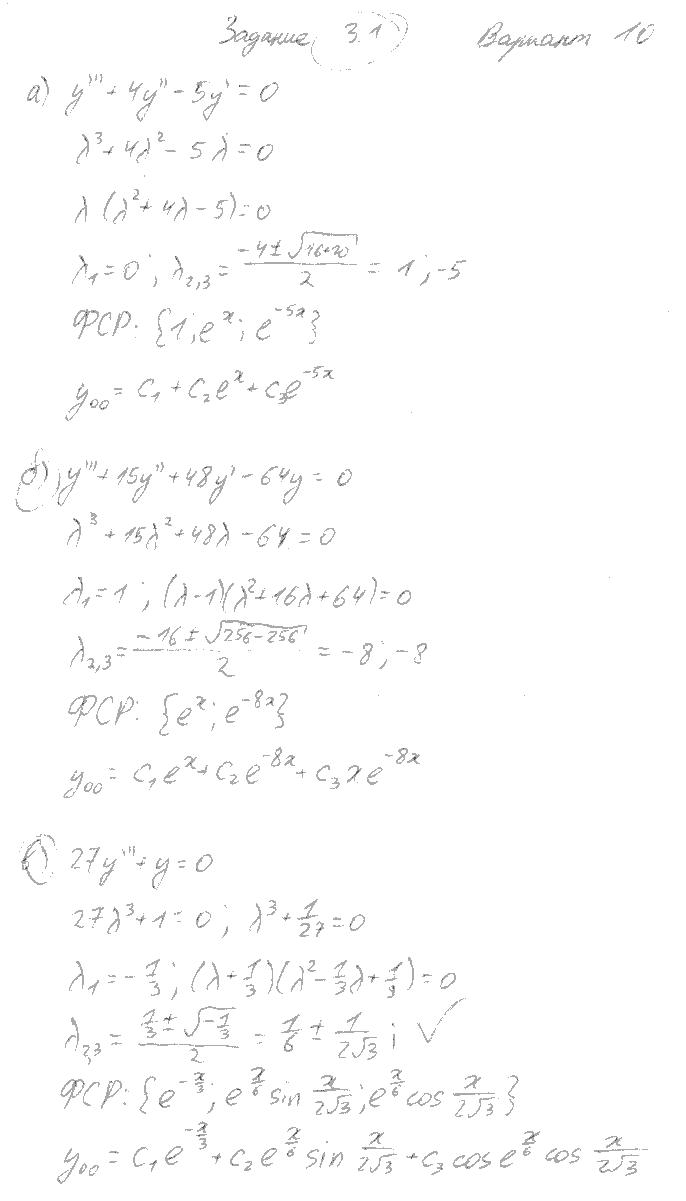 Задание 3.1 Вариант 10
а) y''' + 4y'' - 5y' = 0
λ³ + 4λ² - 5λ = 0
λ (λ² + 4λ - 5) = 0
λ₁ = 0 ; λ₂,₃ = (-4 ± √(16+20))/2 = 1 ; -5
ФСР: {1; eˣ; e⁻⁵ˣ}
y₀₀ = C₁ + C₂eˣ + C₃e⁻⁵ˣ
б) y''' + 15y'' + 48y' - 64y = 0
λ³ + 15λ² + 48λ - 64 = 0
λ₁ = 1 ; (λ-1)(λ² + 16λ + 64) = 0
λ₂,₃ = (-16 ± √(256-256))/2 = -8 ; -8
ФСР: {eˣ; e⁻⁸ˣ}
y₀₀ = C₁eˣ + C₂e⁻⁸ˣ + C₃xe⁻⁸ˣ
в) 27y''' + y = 0
27λ³ + 1 = 0 ; λ³ + 1/27 = 0
λ₁ = -1/3 ; (λ + 1/3)(λ² - 1/3 λ + 1/9) = 0
λ₂,₃ = (1/3 ± √(-1/3))/2 = 1/6 ± 1/(2√3) i ✓
ФСР: {e^(-x/3); e^(x/6) sin x/(2√3); e^(x/6) cos x/(2√3)}
y₀₀ = C₁e^(-x/3) + C₂e^(x/6) sin x/(2√3) + C₃ cos e^(x/6) cos x/(2√3)